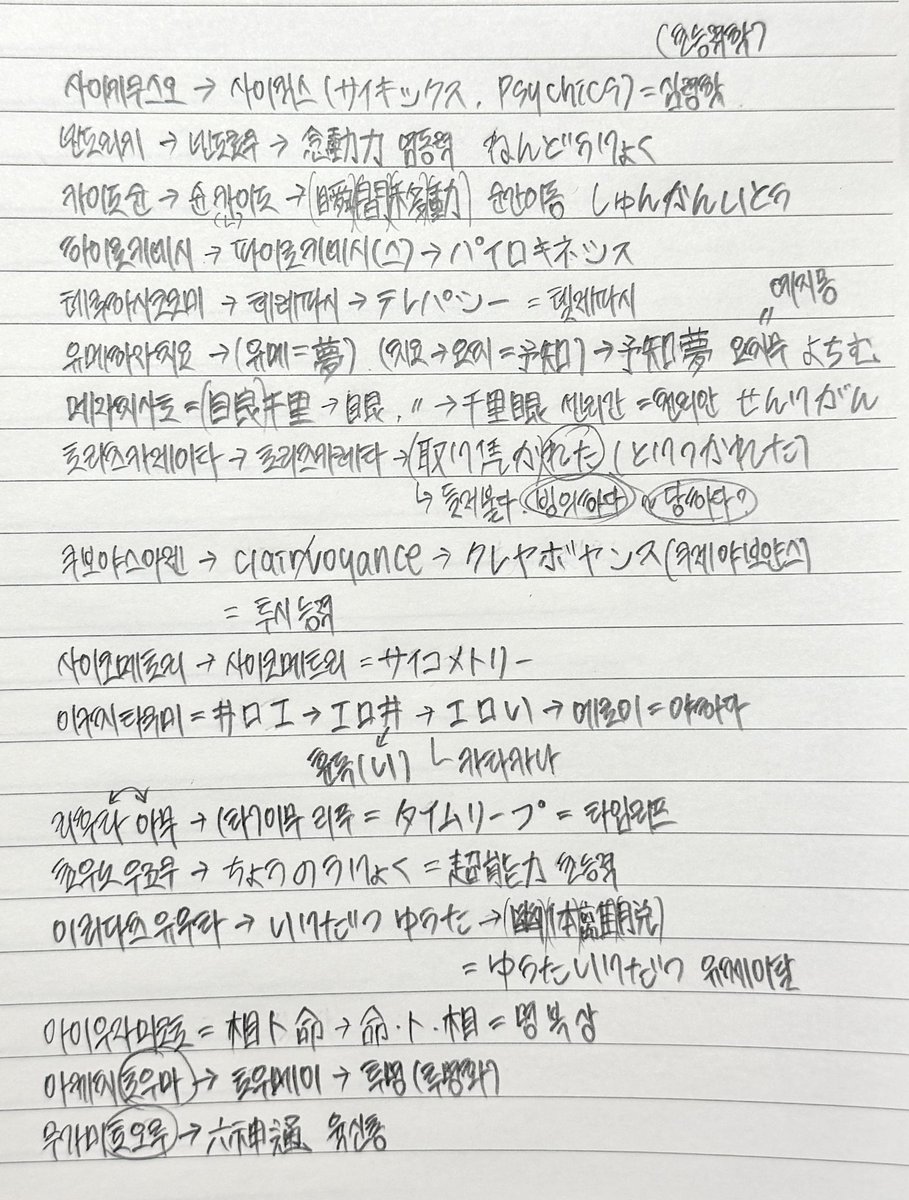 (초능력학)
사이키쿠스오 → 사이킥스 (サイキックス, Psychics) = 심령학
넨도리키 → 넨도료쿠 → 念動力 염동력 ねんどうりょく
카이도슌 → 슌카이도 → (瞬)(間)(移)(動) 순간이동 しゅんかんいどう
(느)
하이로케네시 → 파이로케네시(스) → パイロキネシス
테루하시코코미 → 테레파시 → テレパシー = 텔레파시 예지몽
유메하라치요 → (유메=夢) (치요→요치=予知) → 予知夢 요치무 よちむ
메라치사토 = (目良)千里 → 目良, 〃 → 千里眼 센리간 = 천리안 せんりがん
토리츠카레이타 → 토리츠카레타 → (取り憑か)れた (とりつかれた)
↳ 들러붙다. 빙의하다 ~당하다?
쿠보야스아렌 → clairvoyance → クレヤボヤンス (쿠레야보얀스)
= 투시능력
사이코메토리 → 사이코메트리 = サイコメトリー
이구치타쿠미 = 井口工 → エロ井 → エロい → 에로이 = 야하다
훈독(い) ㄴ 카타카나
리쿠타 이무 → (타)이무 리푸 = タイムリープ = 타임리프
쵸우노우료쿠 → ちょうのうりょく = 超能力 초능력
이리다츠유우타 → いりだつ ゆうた → (幽)(体)(離)(脱)
= ゆうたいりだつ 유체이탈
아이우라미코토 = 相卜命 → 命·卜·相 = 명복상
아케치토우마 → 토우메이 → 투명 (투명화)
무가미토오루 → 六神通 육신통